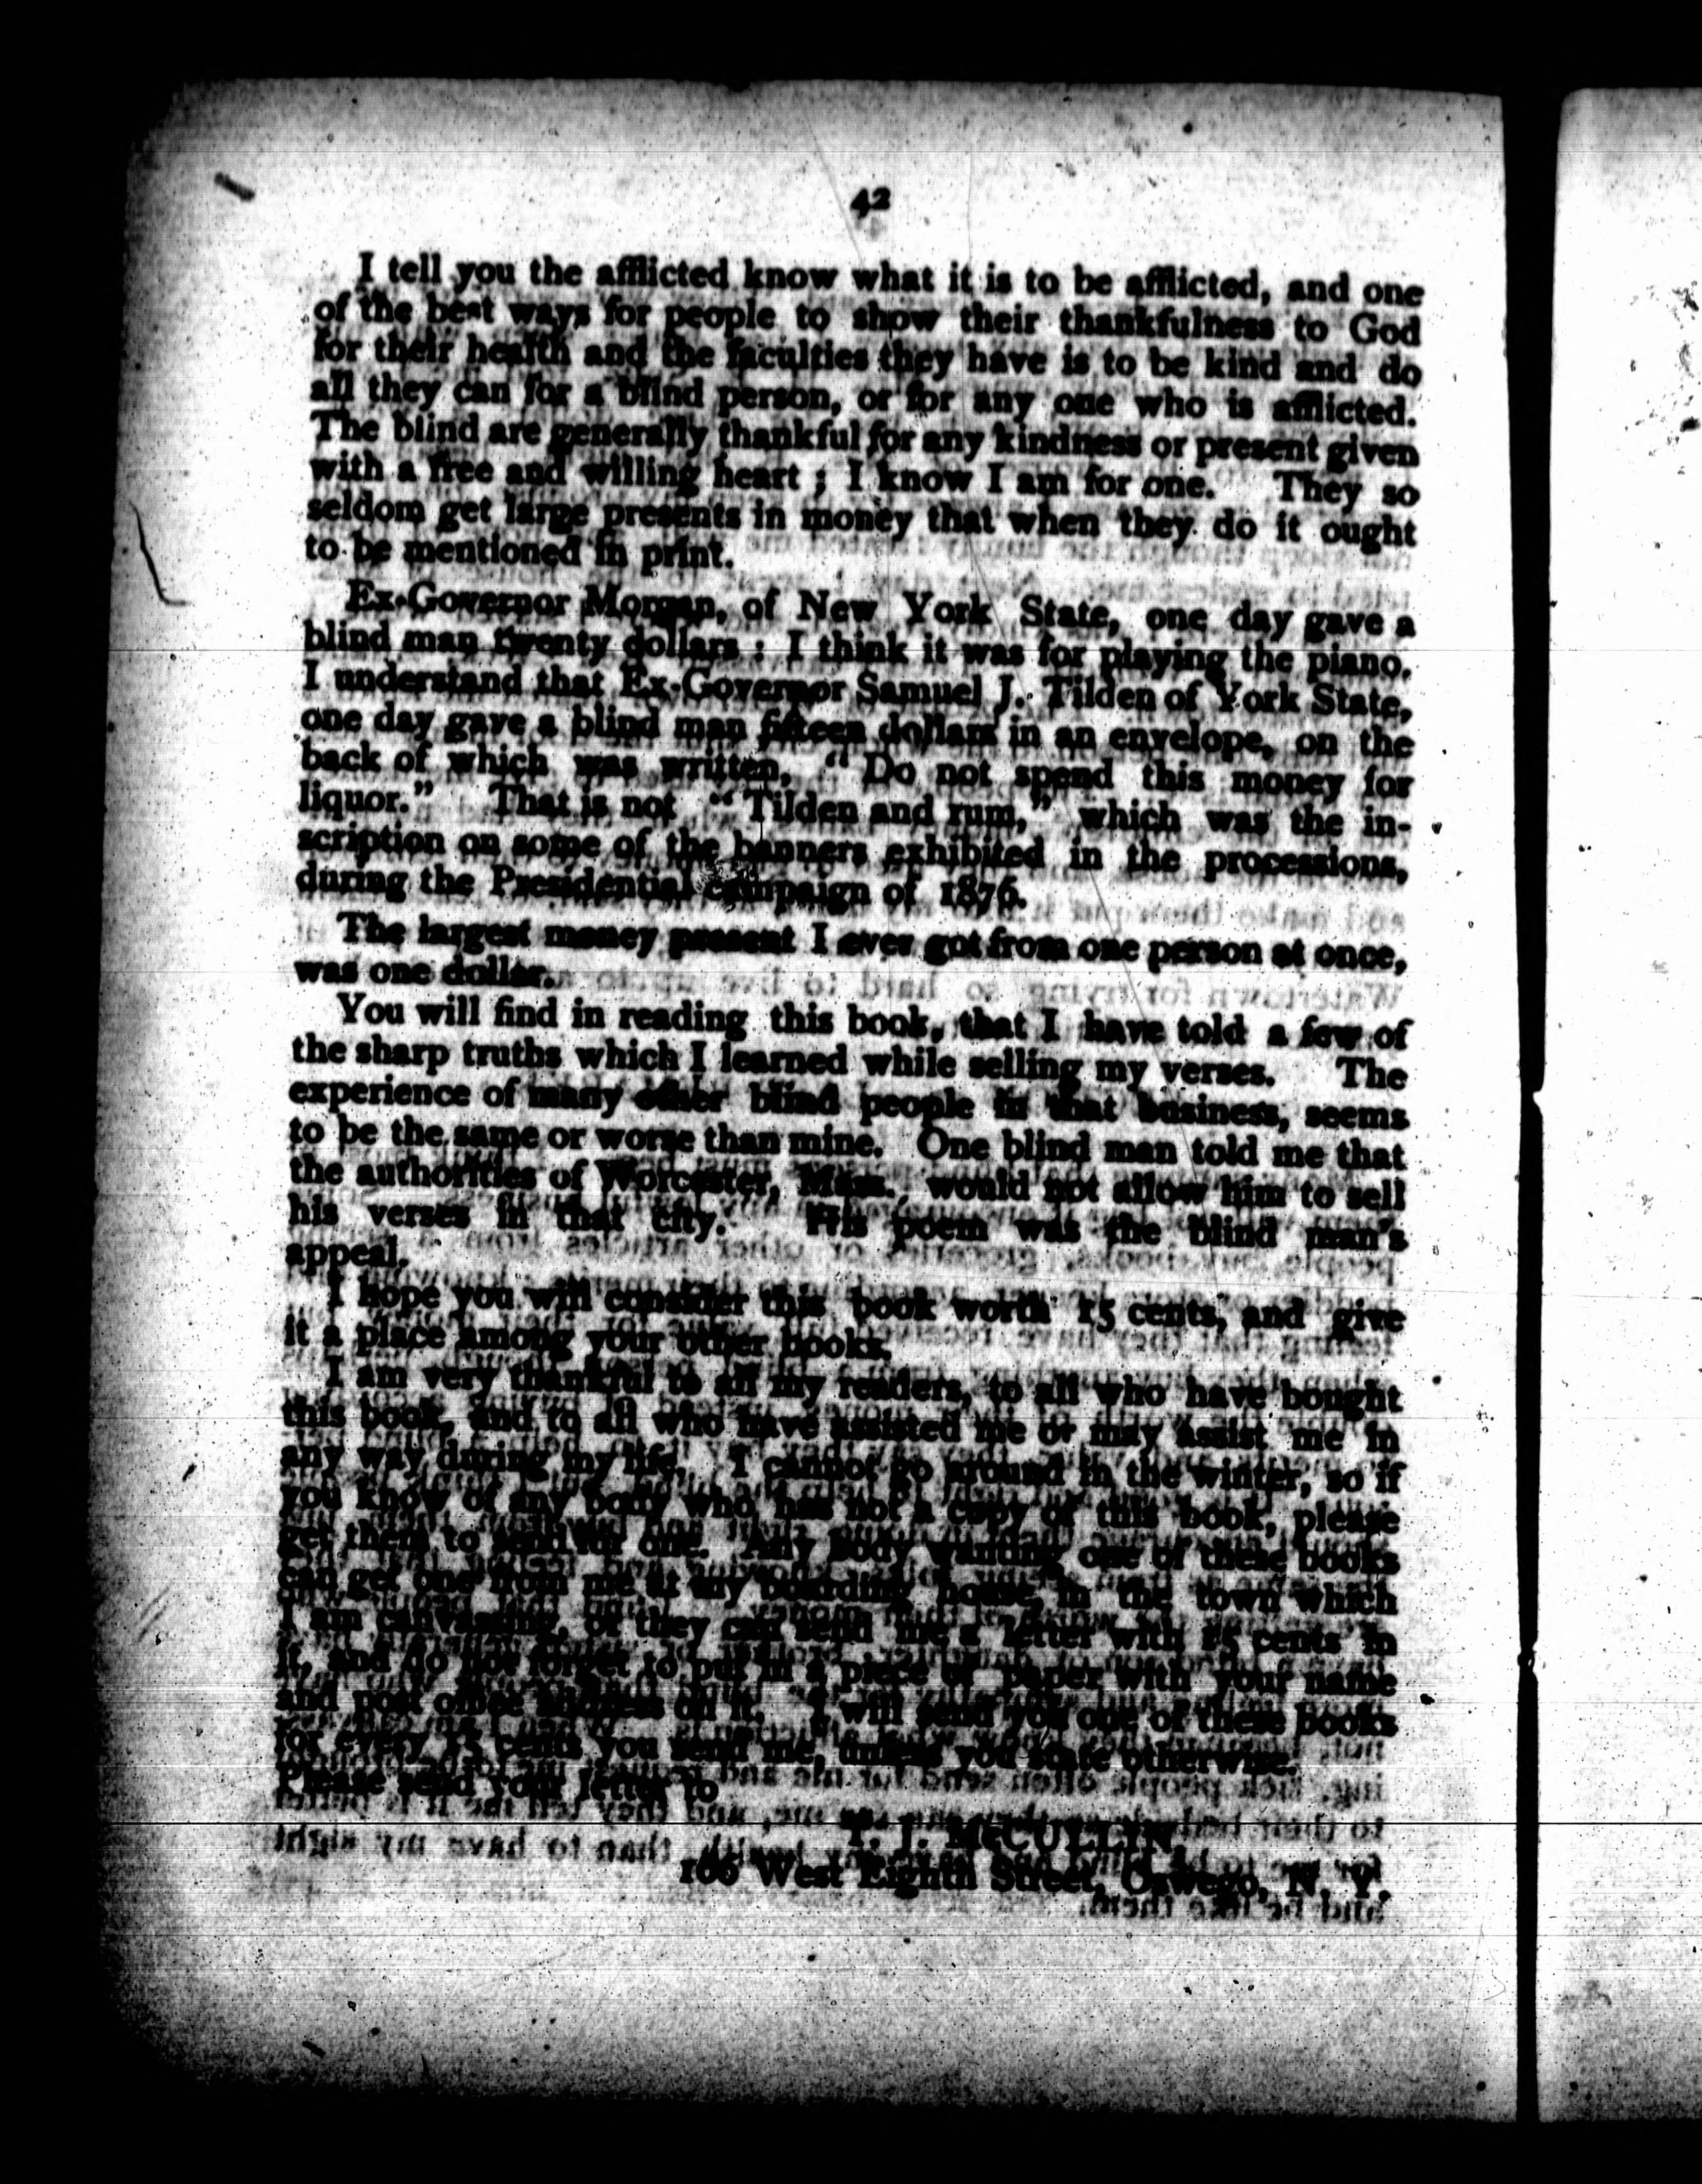 42
I tell you the afflicted know what it is to be afflicted, and one
of the best ways for people to show their thankfulness to God
for their health and the faculties they have is to be kind and do
all they can for a blind person, or for any one who is afflicted.
The blind are generally thankful for any kindness or present given
with a free and willing heart ; I know I am for one. They so
seldom get large presents in money that when they do it ought
to be mentioned in print.
Ex-Governor Morgan, of New York State, one day gave a
blind man twenty dollars : I think it was for playing the piano.
I understand that Ex-Governor Samuel J. Tilden of York State,
one day gave a blind man fifteen dollars in an envelope, on the
back of which was written, “ Do not spend this money for
liquor.” That is not “ Tilden and rum,” which was the in-
scription on some of the banners exhibited in the processions,
during the Presidential campaign of 1876.
The largest money present I ever got from one person at once,
was one dollar.
You will find in reading this book, that I have told a few of
the sharp truths which I learned while selling my verses. The
experience of many other blind people in that business, seems
to be the same or worse than mine. One blind man told me that
the authorities of Worcester, Mass., would not allow him to sell
his verses in that city. His poem was the blind man's
appeal.
I hope you will consider this book worth 15 cents, and give
it a place among your other books.
I am very thankful to all my readers, to all who have bought
this book, and to all who have assisted me or may assist me in
any way during my life. I cannot go around in the winter, so if
you know of any body who has not a copy of this book, please
get them to send for one. Any body wanting one of these books
can get one from me at my boarding house, in the town which
I am canvassing, or they can send me a letter with 15 cents in
it, and do not forget to put in a piece of paper with your name
and post office address on it. I will send you one of these books
for every 15 cents you send me, unless you state otherwise.
Please send your letter to
T. J. McCULLIN
166 West Eighth Street, Oswego, N. Y.